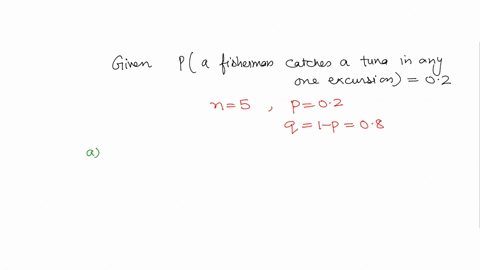 Given P( a fisherman catches a tuna in any
one excursion) = 0.2
n=5 , p=0.2
q = 1-p = 0.8
a)